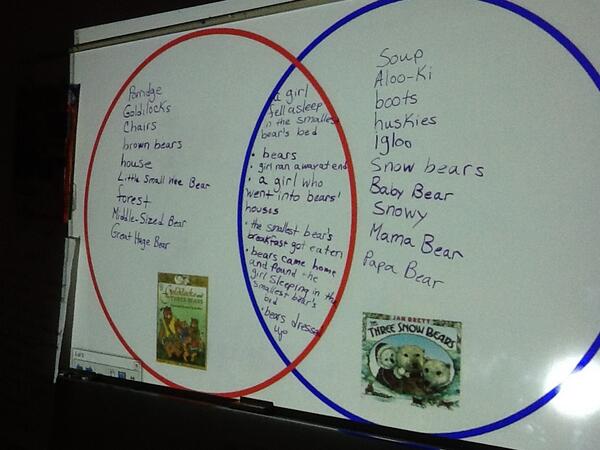 Porridge
Goldilocks
Chairs
brown bears
house
Little Small Wee Bear
forest
Middle-Sized Bear
Great Huge Bear
Goldilocks and
THREE BEARS
a girl
fell asleep
in the smallest
bear's bed
• bears
• girl ran away at end
• a girl who
went into bears'
houses
• the smallest bear's
breakfast got eaten
• bears came home
and found the
girl sleeping in the
smallest bear's
bed
• bears dressed
up
Soup
Aloo-Ki
boots
huskies
Igloo
Snow bears
Baby Bear
Snowy
Mama Bear
Papa Bear
JAN BRETT
THE
THREE SNOW BEARS